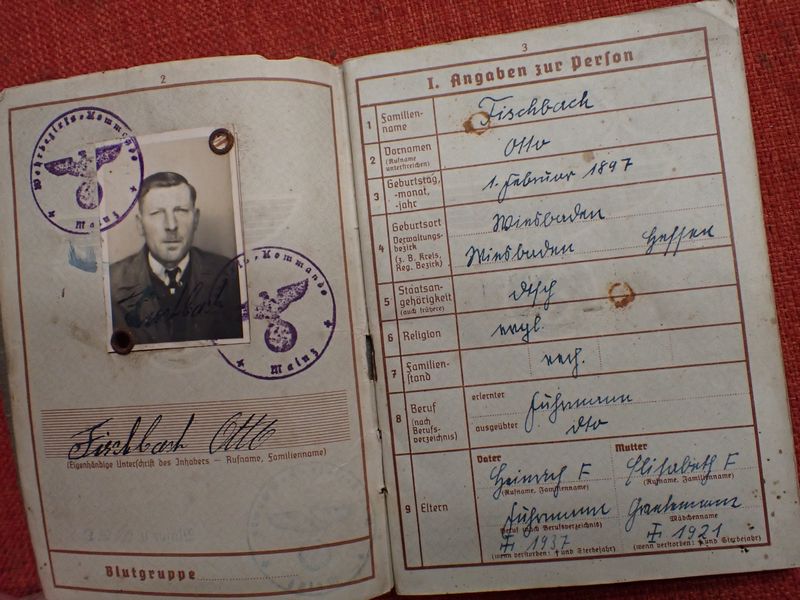 2
Wehrbezirks-Kommando
Mainz
Fischbach
Kommando
Mainz
Fischbach Otto
(Eigenhändige Unterschrift des Inhabers — Rufname, Familienname)
Blutgruppe
3
I. Angaben zur Person
1 Familien-
name
Fischbach
2 Vornamen
(Rufname
unterstreichen)
Otto
3 Geburtstag,
-monat,
-jahr
1. Februar 1897
4 Geburtsort
Verwaltungs-
bezirk
(z. B. Kreis,
Reg. Bezirk)
Wiesbaden
Wiesbaden Hessen
5 Staatsan-
gehörigkeit
(auch frühere)
dtsch
6 Religion
evgl.
7 Familien-
stand
verh.
8 Beruf
(nach
Berufs-
verzeichnis)
erlernter Fuhrmann
ausgeübter dto
9 Eltern
Vater
Heinrich F
(Rufname, Familienname)
Fuhrmann
(Beruf nach Berufsverzeichnis)
1937
(wenn verstorben: † und Sterbejahr)
Mutter
Elisabeth F
(Rufname, Familienname)
Mädchenname
1921
(wenn verstorben: † und Sterbejahr)